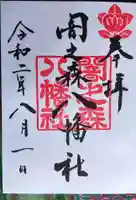 奉拝
闇之森八幡社
闇之森
八幡社
令和二年八月一日